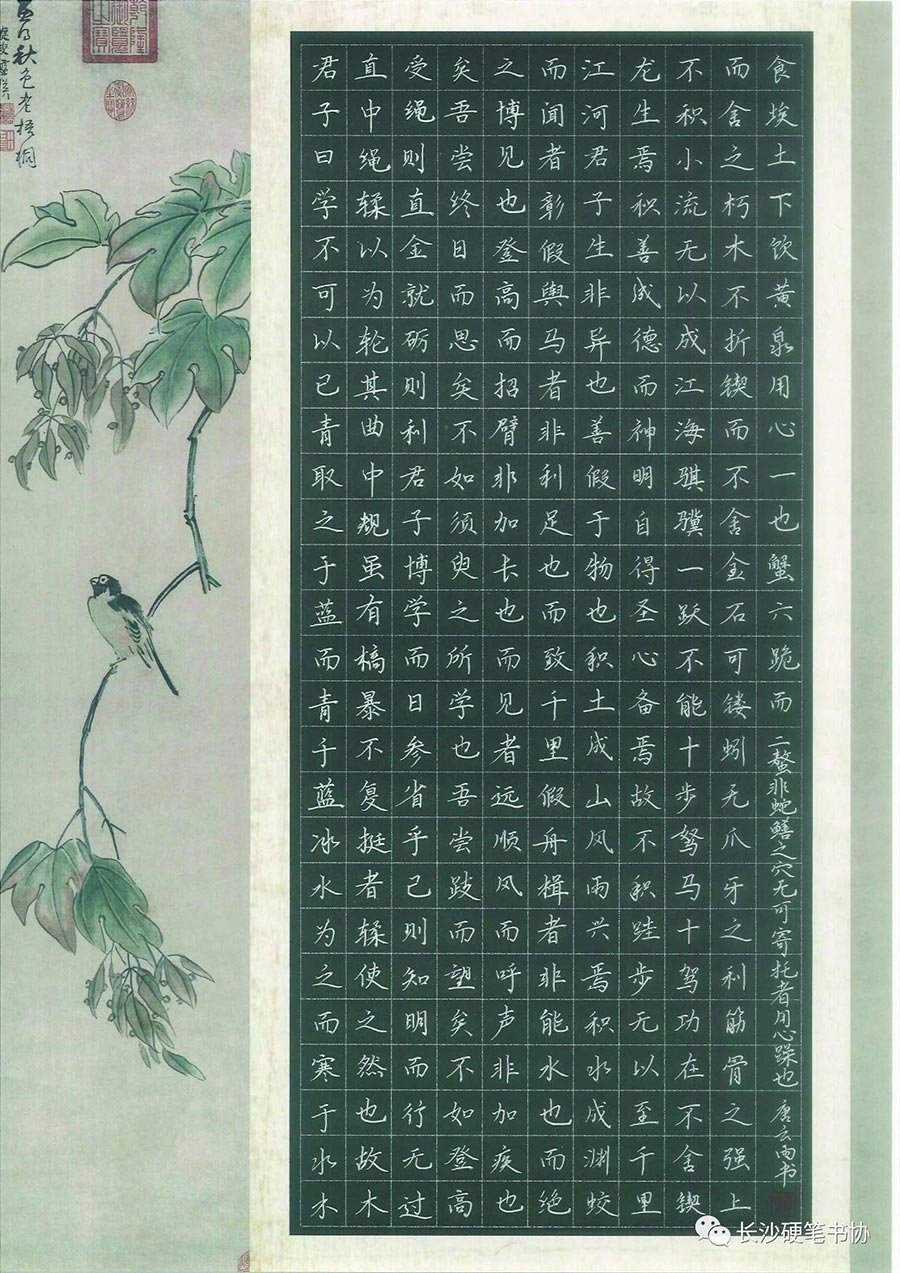 秋色老梧桐
乾隆御览之宝
君子曰学不可以已青取之于蓝而青于蓝冰水为之而寒于水木
直中绳𫐓以为轮其曲中规虽有槁暴不复挺者𫐓使之然也故木
受绳则直金就砺则利君子博学而日参省乎己则知明而行无过
矣吾尝终日而思矣不如须臾之所学也吾尝跂而望矣不如登高
之博见也登高而招臂非加长也而见者远顺风而呼声非加疾也
而闻者彰假舆马者非利足也而致千里假舟楫者非能水也而绝
江河君子生非异也善假于物也积土成山风雨兴焉积水成渊蛟
龙生焉积善成德而神明自得圣心备焉故不积跬步无以至千里
不积小流无以成江海骐骥一跃不能十步驽马十驾功在不舍锲
而舍之朽木不折锲而不舍金石可镂蚓无爪牙之利筋骨之强上
食埃土下饮黄泉用心一也蟹六跪而二螯非蛇鳝之穴无可寄托者用心躁也 唐云雨书
长沙硬笔书协